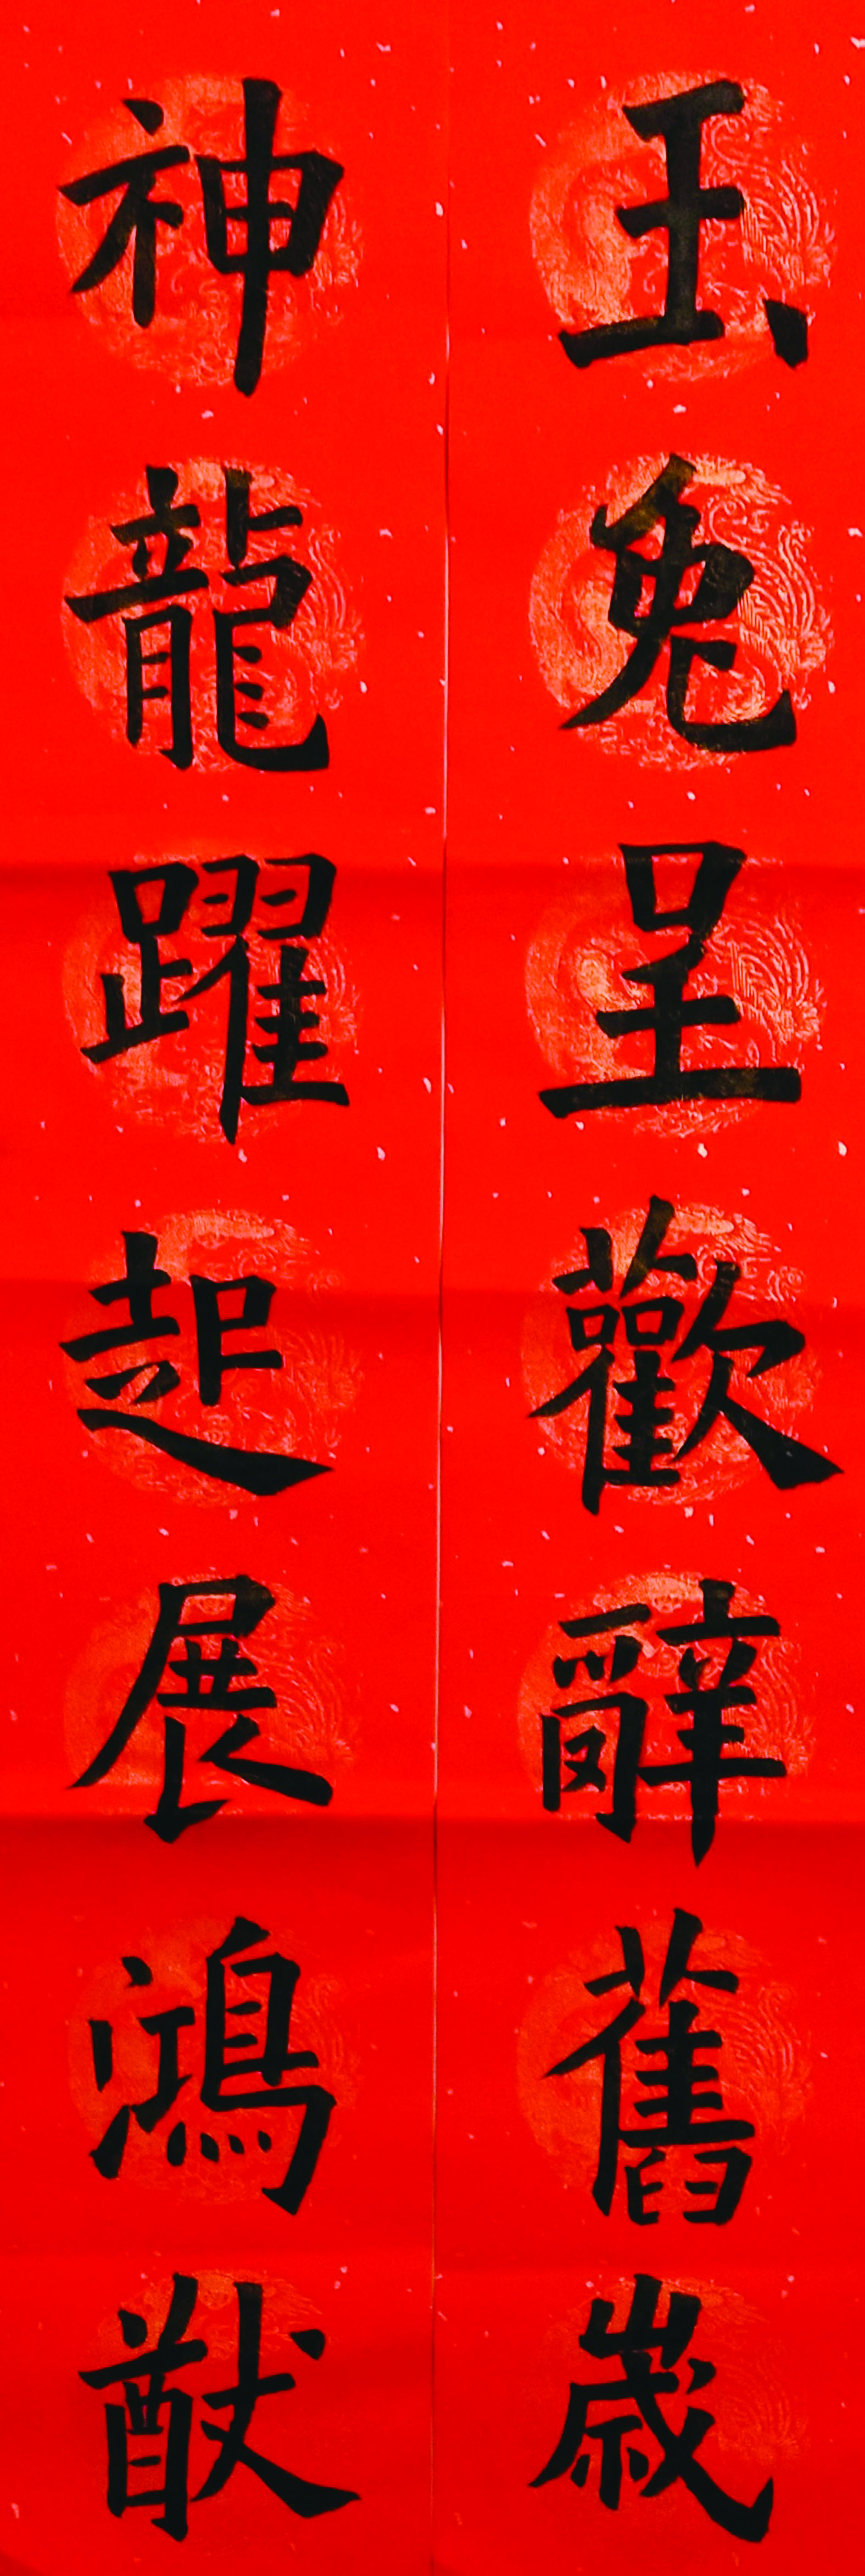 玉兔呈歡辭舊歲
神龍躍起展鴻猷